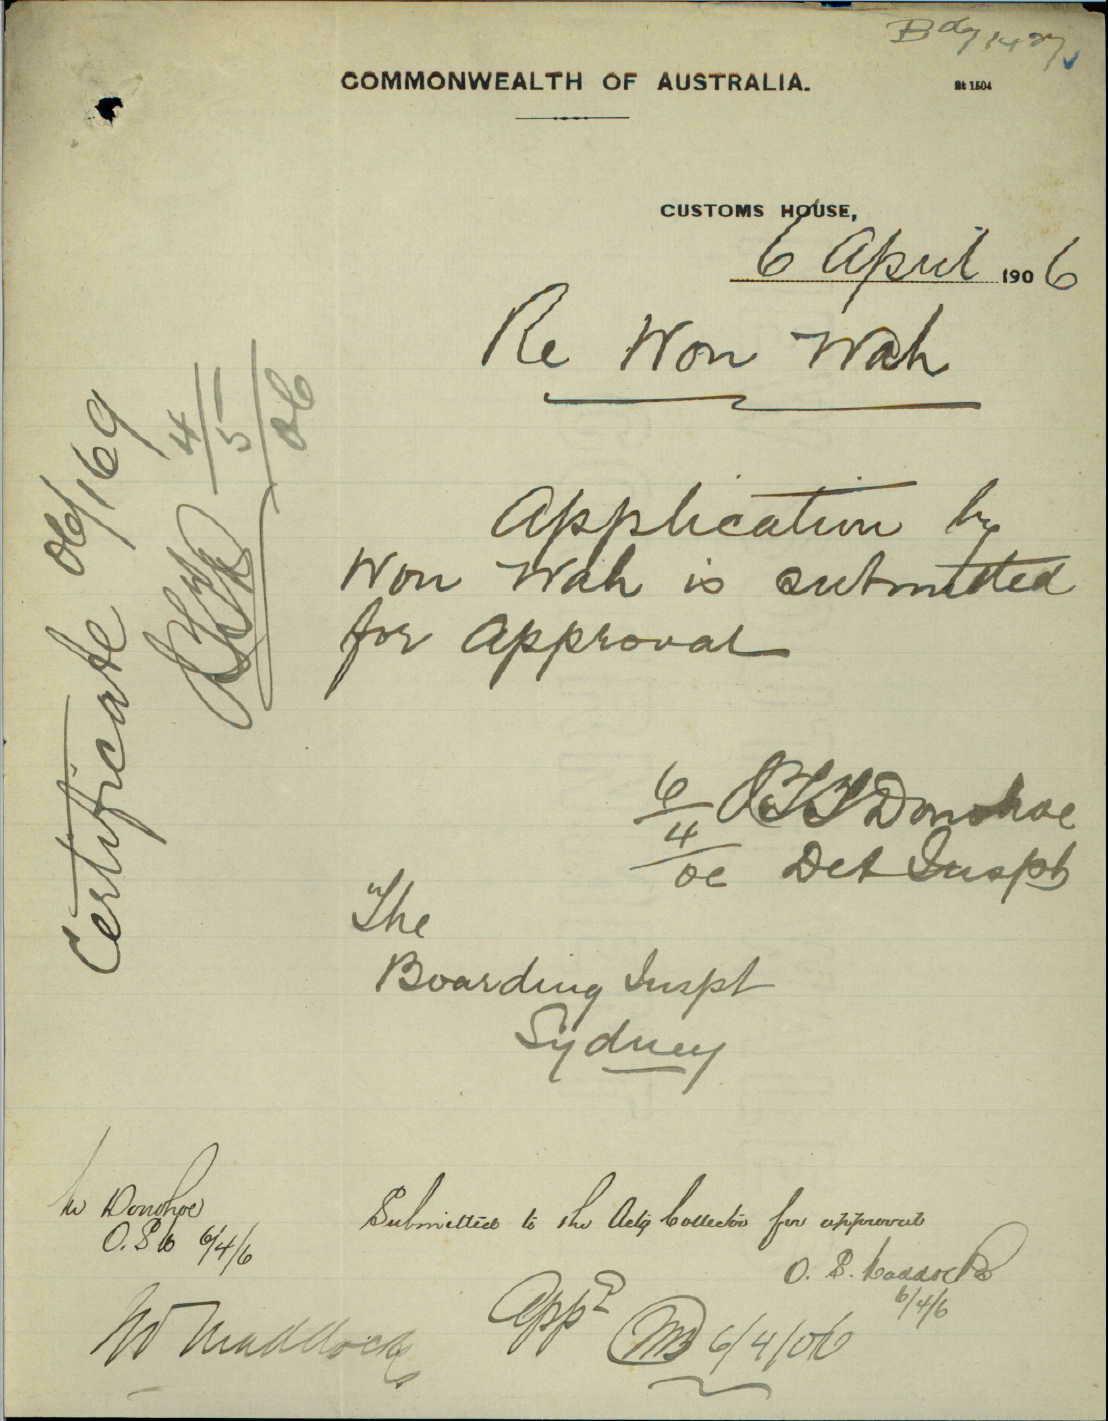 Bdg 14 27
COMMONWEALTH OF AUSTRALIA.
St 1504
CUSTOMS HOUSE,
6 April 1906
Re Won Wah
Application by
Won Wah is submitted
for approval
6/4/06 Donohoe
Det Inspt
The
Boarding Inspt
Sydney
Certificate 06/169
4/5/06
Mr Donohoe
6/4/6
Submitted to the Actg Collector for approval
6/4/6
Appd
6/4/06
Mr Maddocks